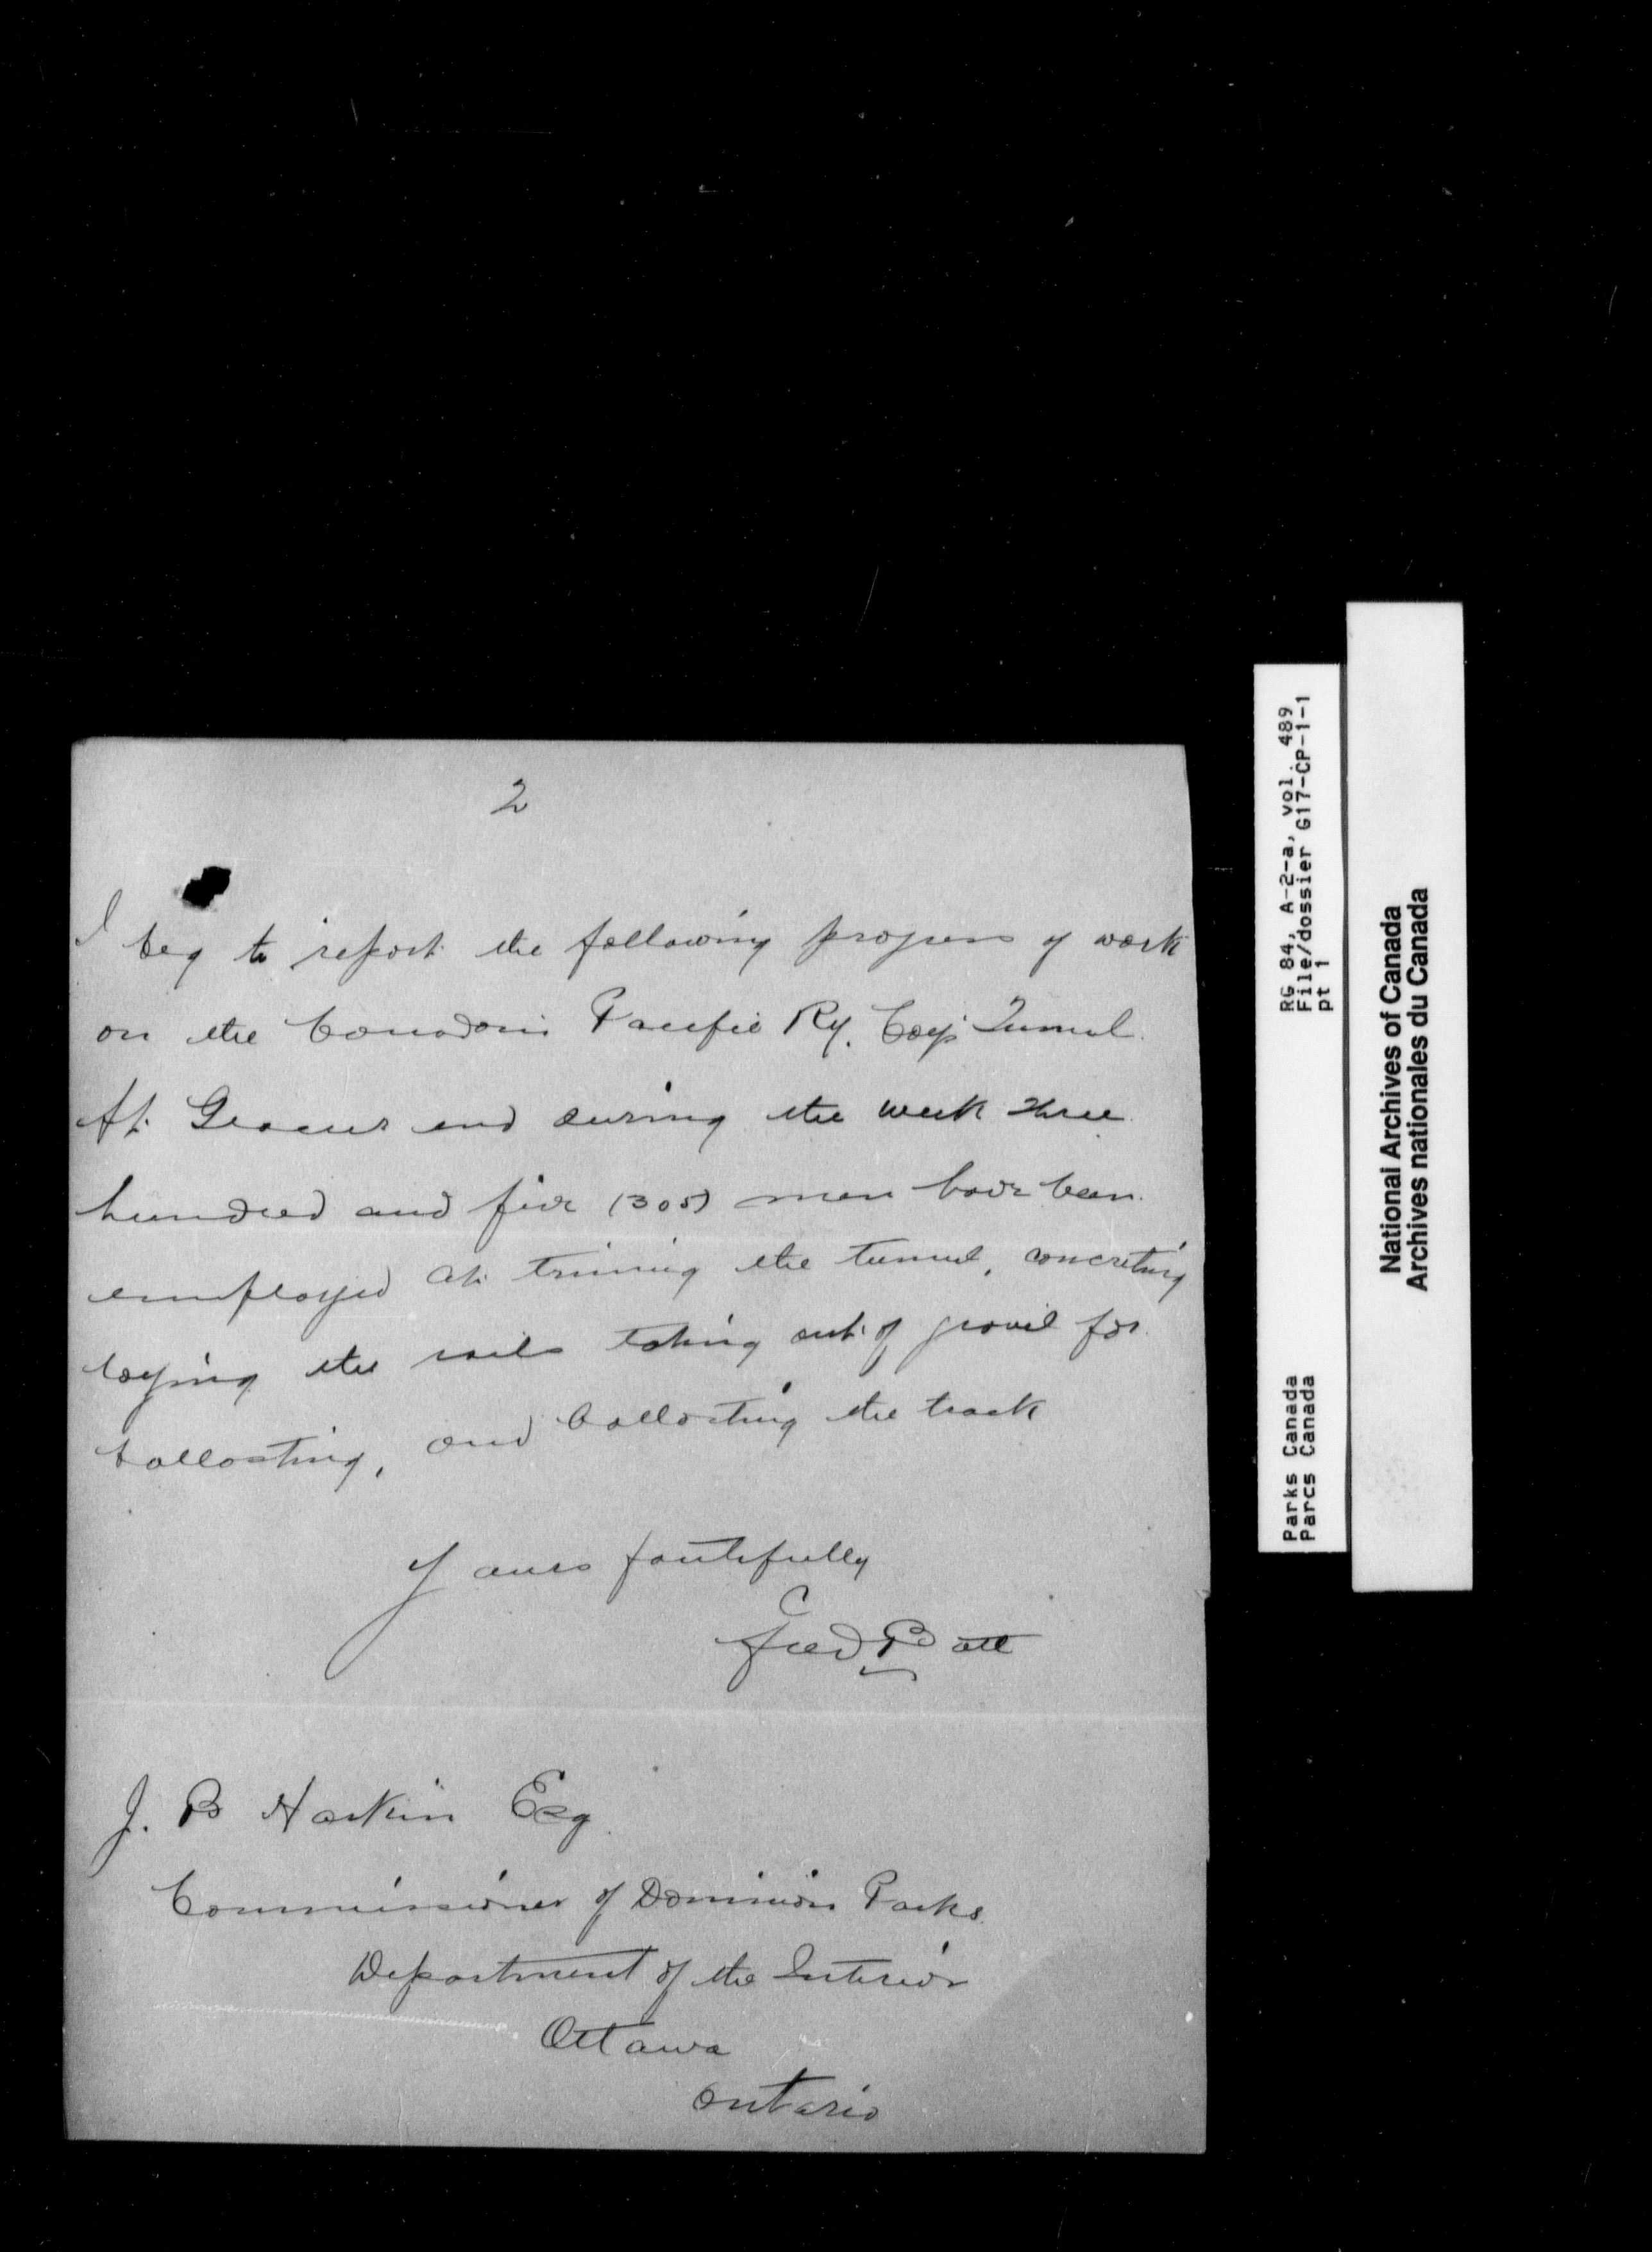 2
I beg to report the following progress of work
on the Canadian Pacific Ry. Coys Tunnel.
At Glacier end during the week three
hundred and five (305) men have been
employed at triming the tunnel, concreting
laying the rails taking out of gravel for
ballasting, and ballasting the track
Yours faithfully
Fred Batt
J. B Harkin Esq
Commissioner of Dominion Parks
Department of the Interior
Ottawa
Ontario
RG 84, A-2-a, vol. 489
File/dossier G17-CP-1-1
pt 1
Parks Canada
Parcs Canada
National Archives of Canada
Archives nationales du Canada